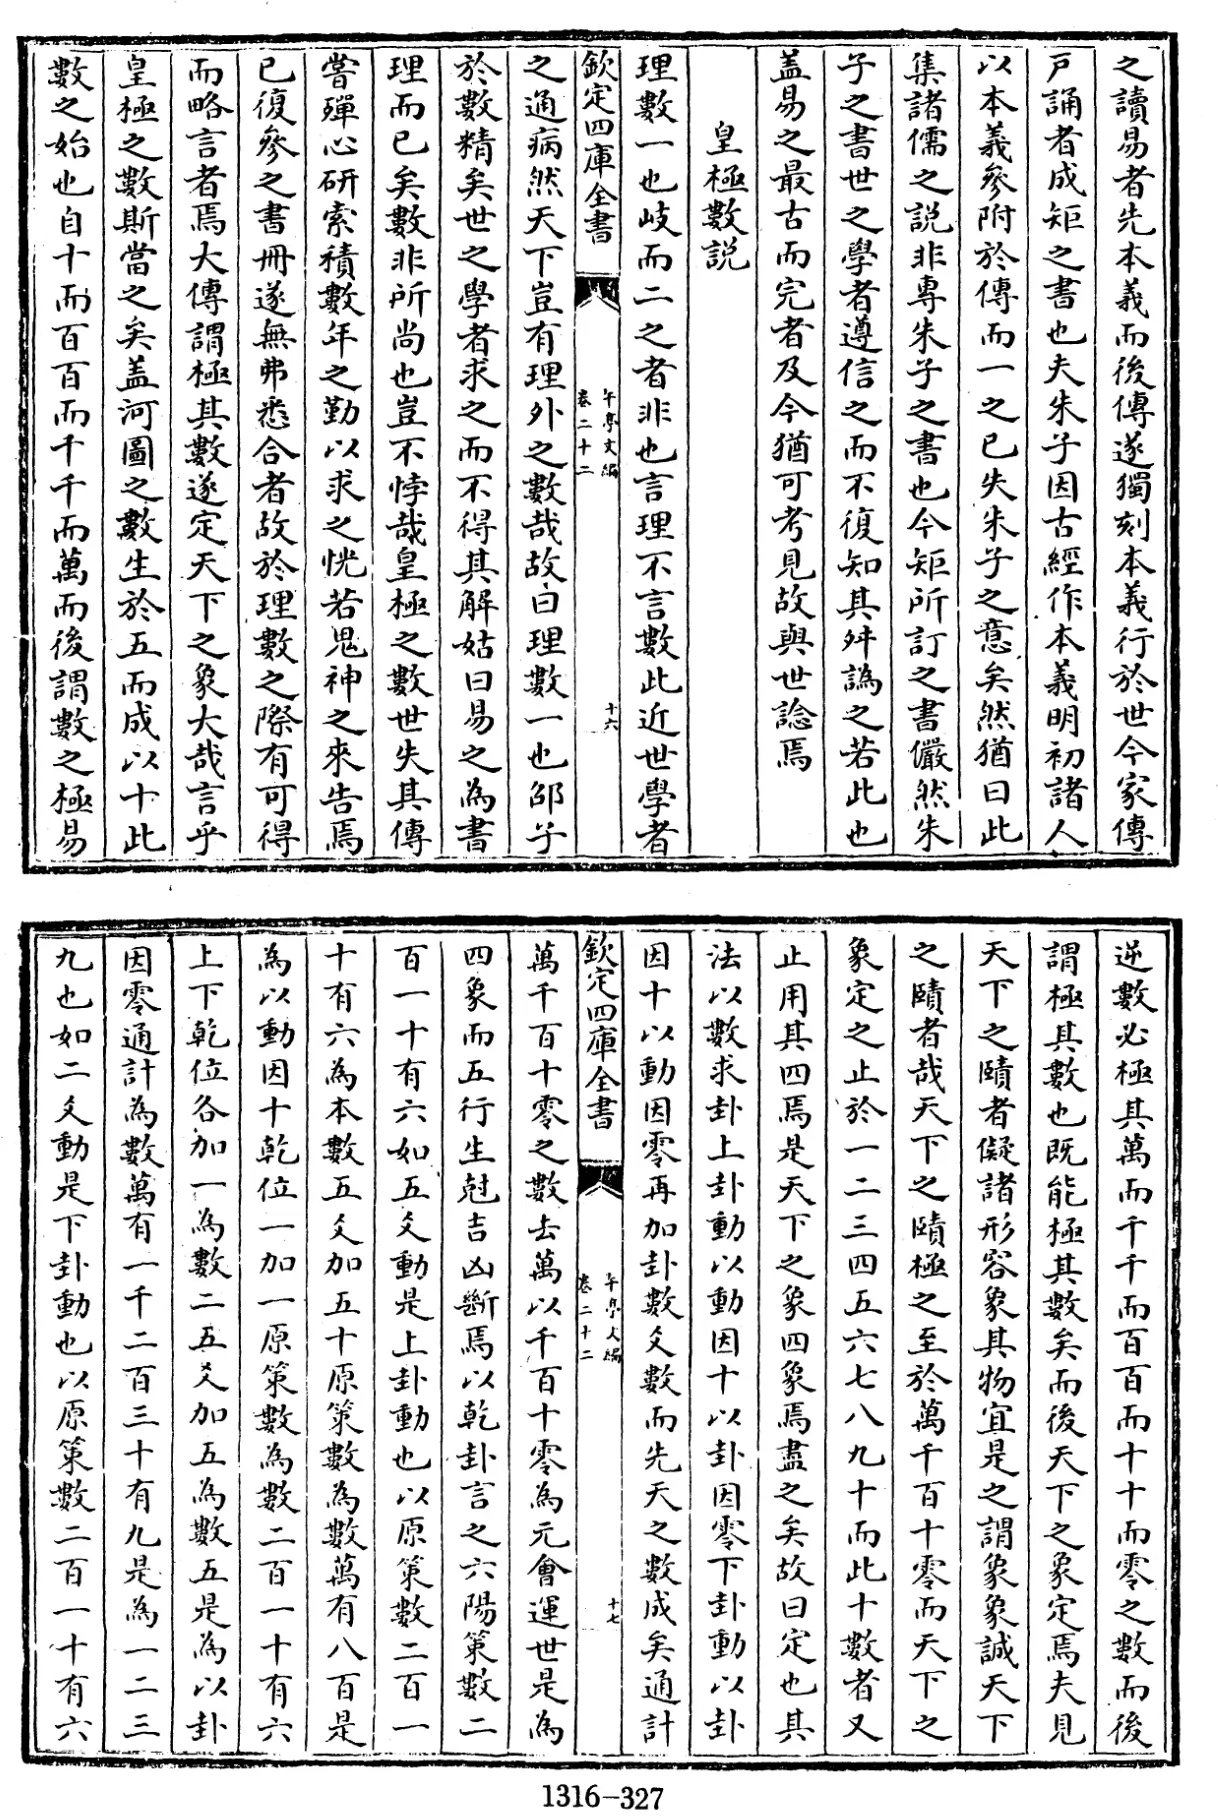 之讀易者先本義而後傳遂獨刻本義行於世今家傳
戸誦者成矩之書也夫朱子因古經作本義明初諸人
以本義參附於傳而一之已失朱子之意矣然猶曰此
集諸儒之說非專朱子之書也今矩所訂之書儼然朱
子之書世之學者遵信之而不復知其舛譌之若此也
盖易之最古而完者及今猶可考見故與世諗焉
皇極數說
理數一也岐而二之者非也言理不言數此近世學者
欽定四庫全書
午亭文編
卷二十二
十六
之通病然天下豈有理外之數哉故曰理數一也邵子
於數精矣世之學者求之而不得其解姑曰易之為書
理而已矣數非所尚也豈不悖哉皇極之數世失其傳
嘗殫心研索積數年之勤以求之恍若鬼神之來告焉
已復參之書冊遂無弗悉合者故於理數之際有可得
而略言者焉大傳謂極其數遂定天下之象大哉言乎
皇極之數斯當之矣盖河圖之數生於五而成以十此
數之始也自十而百百而千千而萬而後謂數之極易
逆數必極其萬而千千而百百而十十而零之數而後
謂極其數也既能極其數矣而後天下之象定焉夫見
天下之賾者儗諸形容象其物宜是之謂象象誠天下
之賾者哉天下之賾極之至於萬千百十零而天下之
象定之止於一二三四五六七八九十而此十數者又
止用其四焉是天下之象四象焉盡之矣故曰定也其
法以數求卦上卦動以動因十以卦因零下卦動以卦
因十以動因零再加卦數爻數而先天之數成矣通計
欽定四庫全書
午亭文編
卷二十二
十七
萬千百十零之數去萬以千百十零為元會運世是為
四象而五行生尅吉凶斷焉以乾卦言之六陽策數二
百一十有六如五爻動是上卦動也以原策數二百一
十有六為本數五爻加五十原策數為數萬有八百是
為以動因十乾位一加一原策數為數二百一十有六
上下乾位各加一為數二五爻加五為數五是為以卦
因零通計為數萬有一千二百三十有九是為一二三
九也如二爻動是下卦動也以原策數二百一十有六
1316-327